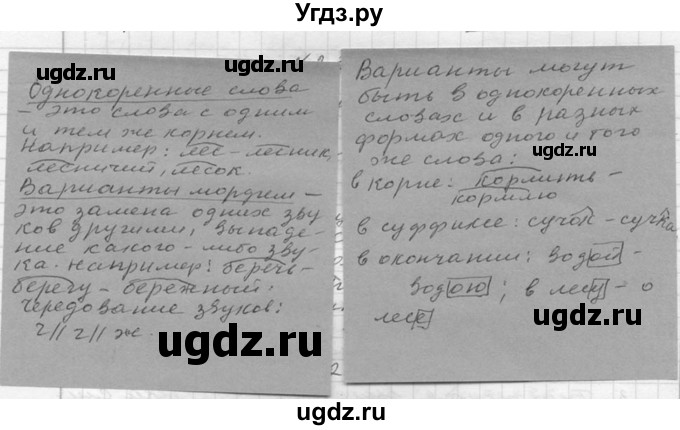 Угдз.ру
Однокоренные слова
– это слова с одним
и тем же корнем.
Например: лес – лесник,
лесничий, лесок.
Варианты морфем –
это замена одних зву
ков другими, выпаде-
ние какого-либо зву-
ка. Например: беречь-
берегу – бережный,
чередование звуков:
ч // г // ж.
Варианты могут
быть в однокоренных
словах и в разных
формах одного и того
же слова:
в корне: кормить –
кормлю
в суффиксе: сучок – сучка
в окончании: водой –
водою; в лесу – о
лесе
ugdz.ru
ugdz.ru
ugdz.ru
ugdz.ru
ugdz.ru
ugdz.ru
ugdz.ru
ugdz.ru
ugdz.ru